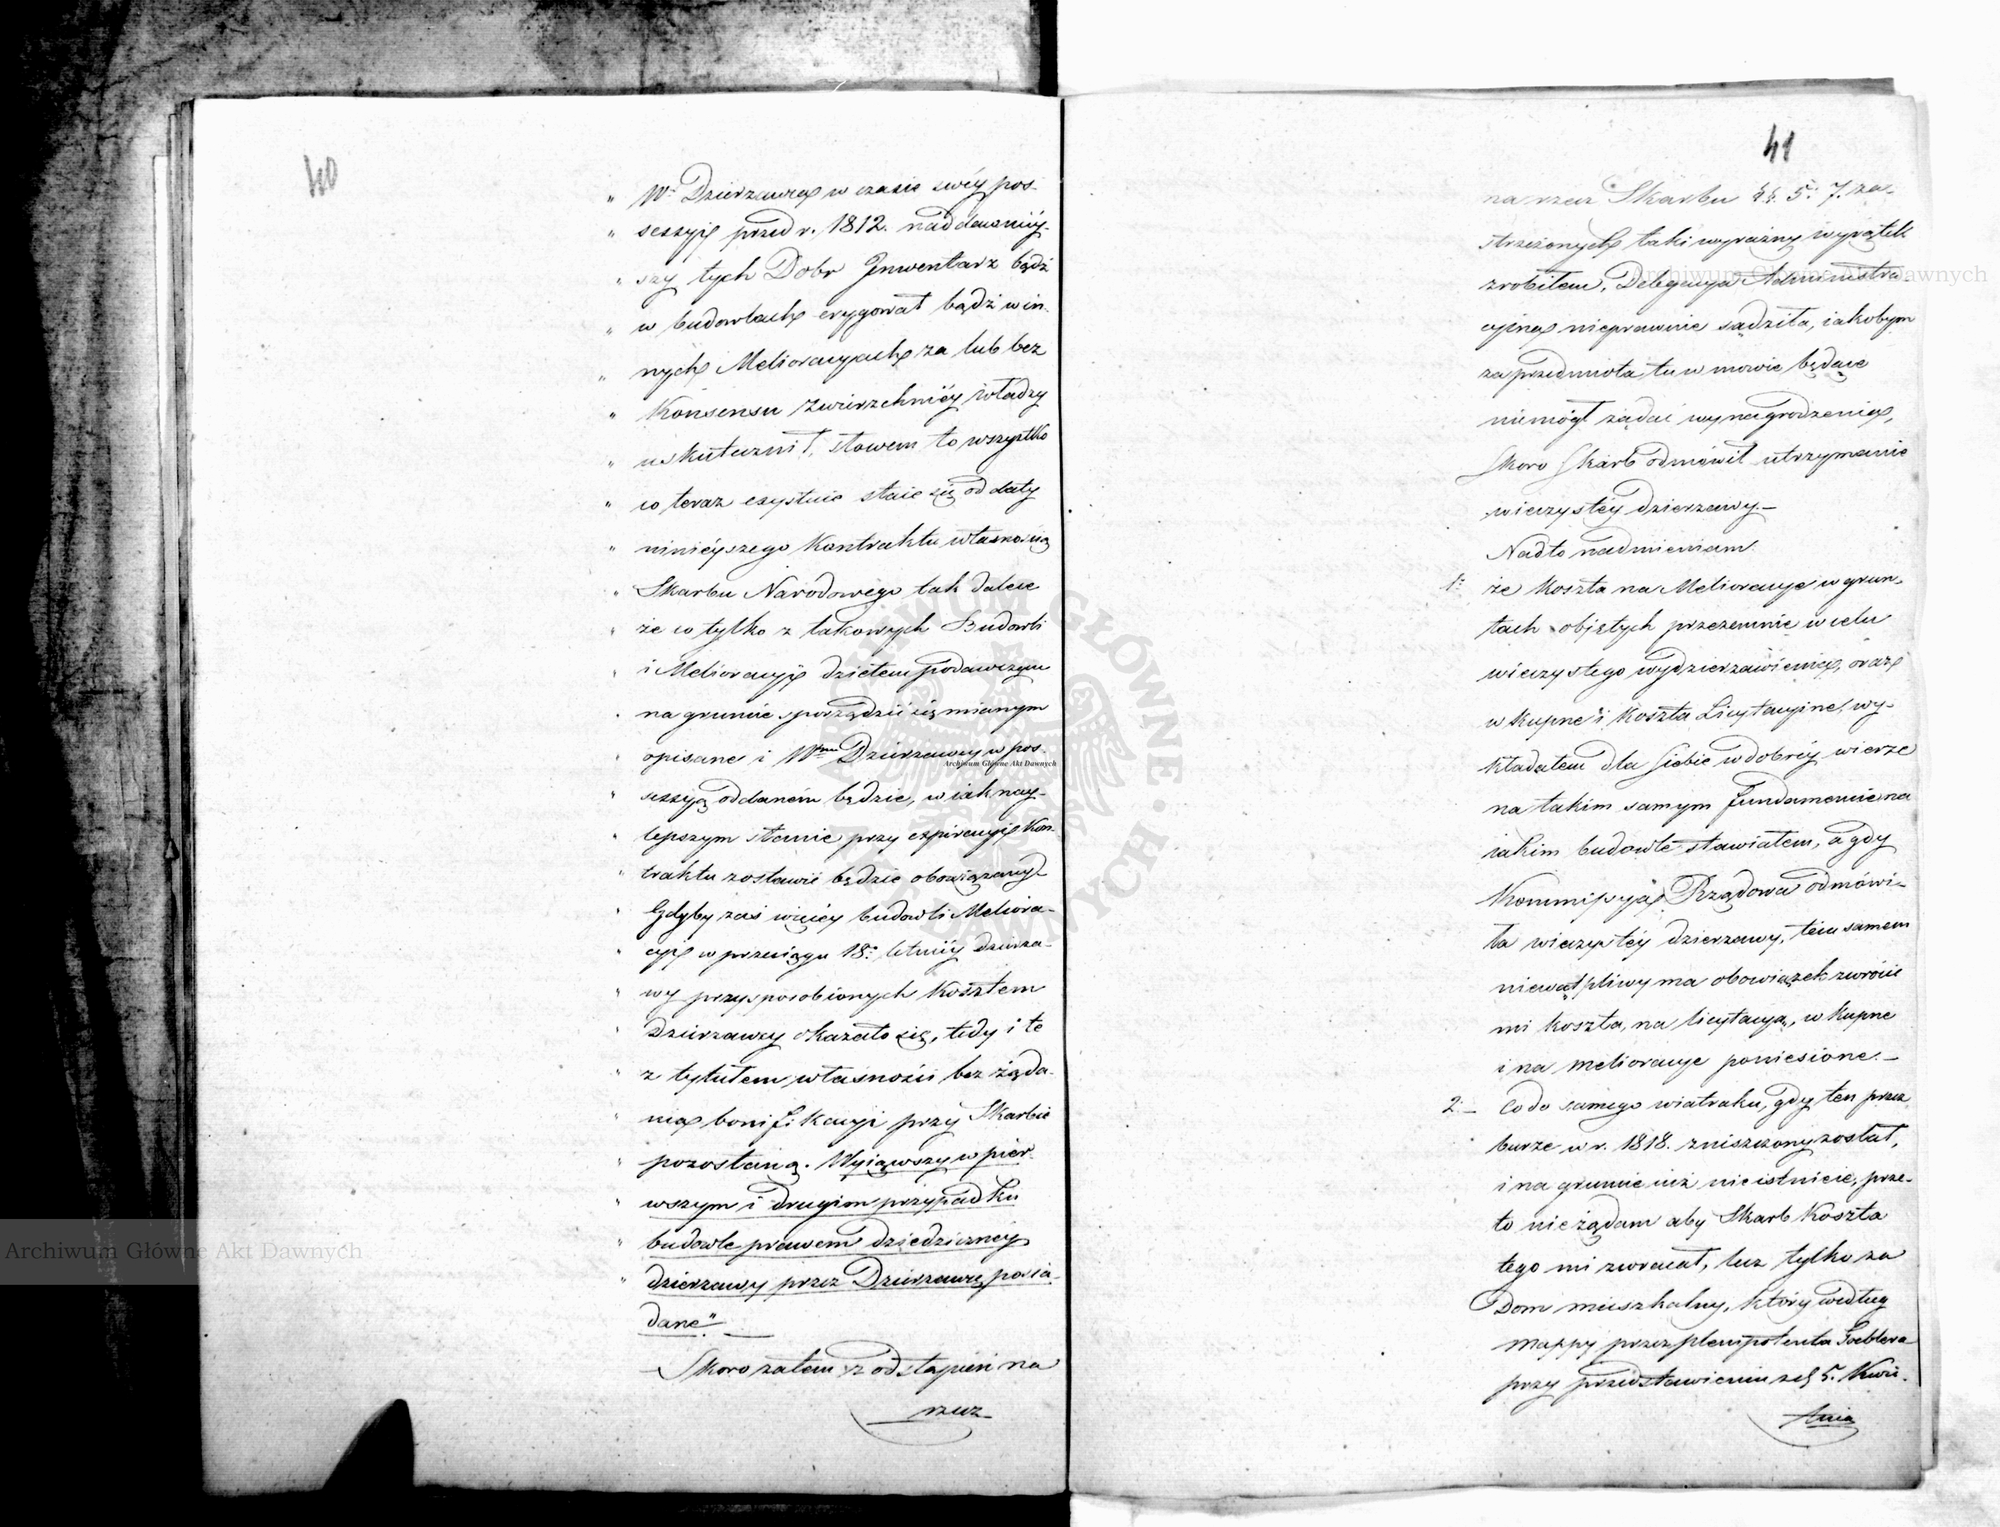 40
" Wr. Dzierzawca w czasie swéy pos-
" sessyi przed r. 1812. nad dawniéy-
" szy tych Dobr Inwentarz bądź
" w budowlach erygował bądź w in-
" nych Melioracyach za lub bez
" Konsensu zwierzchniéy władzy
" uskutecznił, słowem to wszystko
" co teraz exystuie staie się od daty
" ninieyszego Kontraktu własnością
" Skarbu Narodowego tak dalece
" że co tylko z takowych Budowli
" i Melioracyi dziełem podawczym
" na gruncie sporządzić się mianym
" opisane i Wmu Dzierzawcy w pos-
" sessyą oddanem będzie, w iak nay-
" lepszym stanie przy expiracyi Kon-
" traktu zostawić będzie obowiązany.
" Gdyby zaś więcéy budowli Meliora-
" cyi w przeciągu 18. letniéy dzierza-
" wy przysposobionych Kosztem
" Dzierzawcy okazało się, tedy i te
" z tytułem własności bez żąda-
" nia bonifikacyi przy Skarbie
" pozostaną. Wyiąwszy w pier-
" wszym i drugim przypadku
" budowle prawem dziedzicznéy
" dzierzawy przez Dzierzawcę posia-
dane." —
Skoro zatem z odstąpień na
rzecz
41
na rzecz Skarbu §§. 5. 7. za-
strzeżonych taki wyraźny wyiątek
zrobiłem, Delegacya Administra-
cyina nieprawnie sądziła, iakobym
za przedmiota tu w mowie będące
niemógł żądać wynagrodzenia,
skoro Skarb odmówił utrzymanie
wieczystéy dzierzawy. —
Nadto nadmieniam.
1. że Koszta na Melioracye w grun-
tach obiętych przezemnie w celu
wieczystego wydzierzawienia, oraz
wkupne i Koszta Licytacyine, wy-
kładałem dla siebie w dobréy wierze
na takim samym fundamencie na
iakim budowle stawiałem, a gdy
Kommissya Rządowa odmówi-
ła wieczystéy dzierzawy, tem samem
niewątpliwy ma obowiązek zwrócić
mi koszta, na licytacyą, wkupne
i na melioracye poniesione. —
2. — Co do samego wiatraku, gdy ten przez
burze w r. 1818. zniszczony został,
i na gruncie iuż nieistnieie, prze-
to nieżądam aby Skarb Koszta
tego mi zwracał, lecz tylko za
Dom mieszkalny, który według
mappy przez plenipotenta Goeblera
przy przedstawieniu z d. 5. Kwie-
tnia
Archiwum Główne Akt Dawnych
Archiwum Główne Akt Dawnych
Archiwum Główne Akt Dawnych
ARCHIWUM GŁÓWNE AKT DAWNYCH